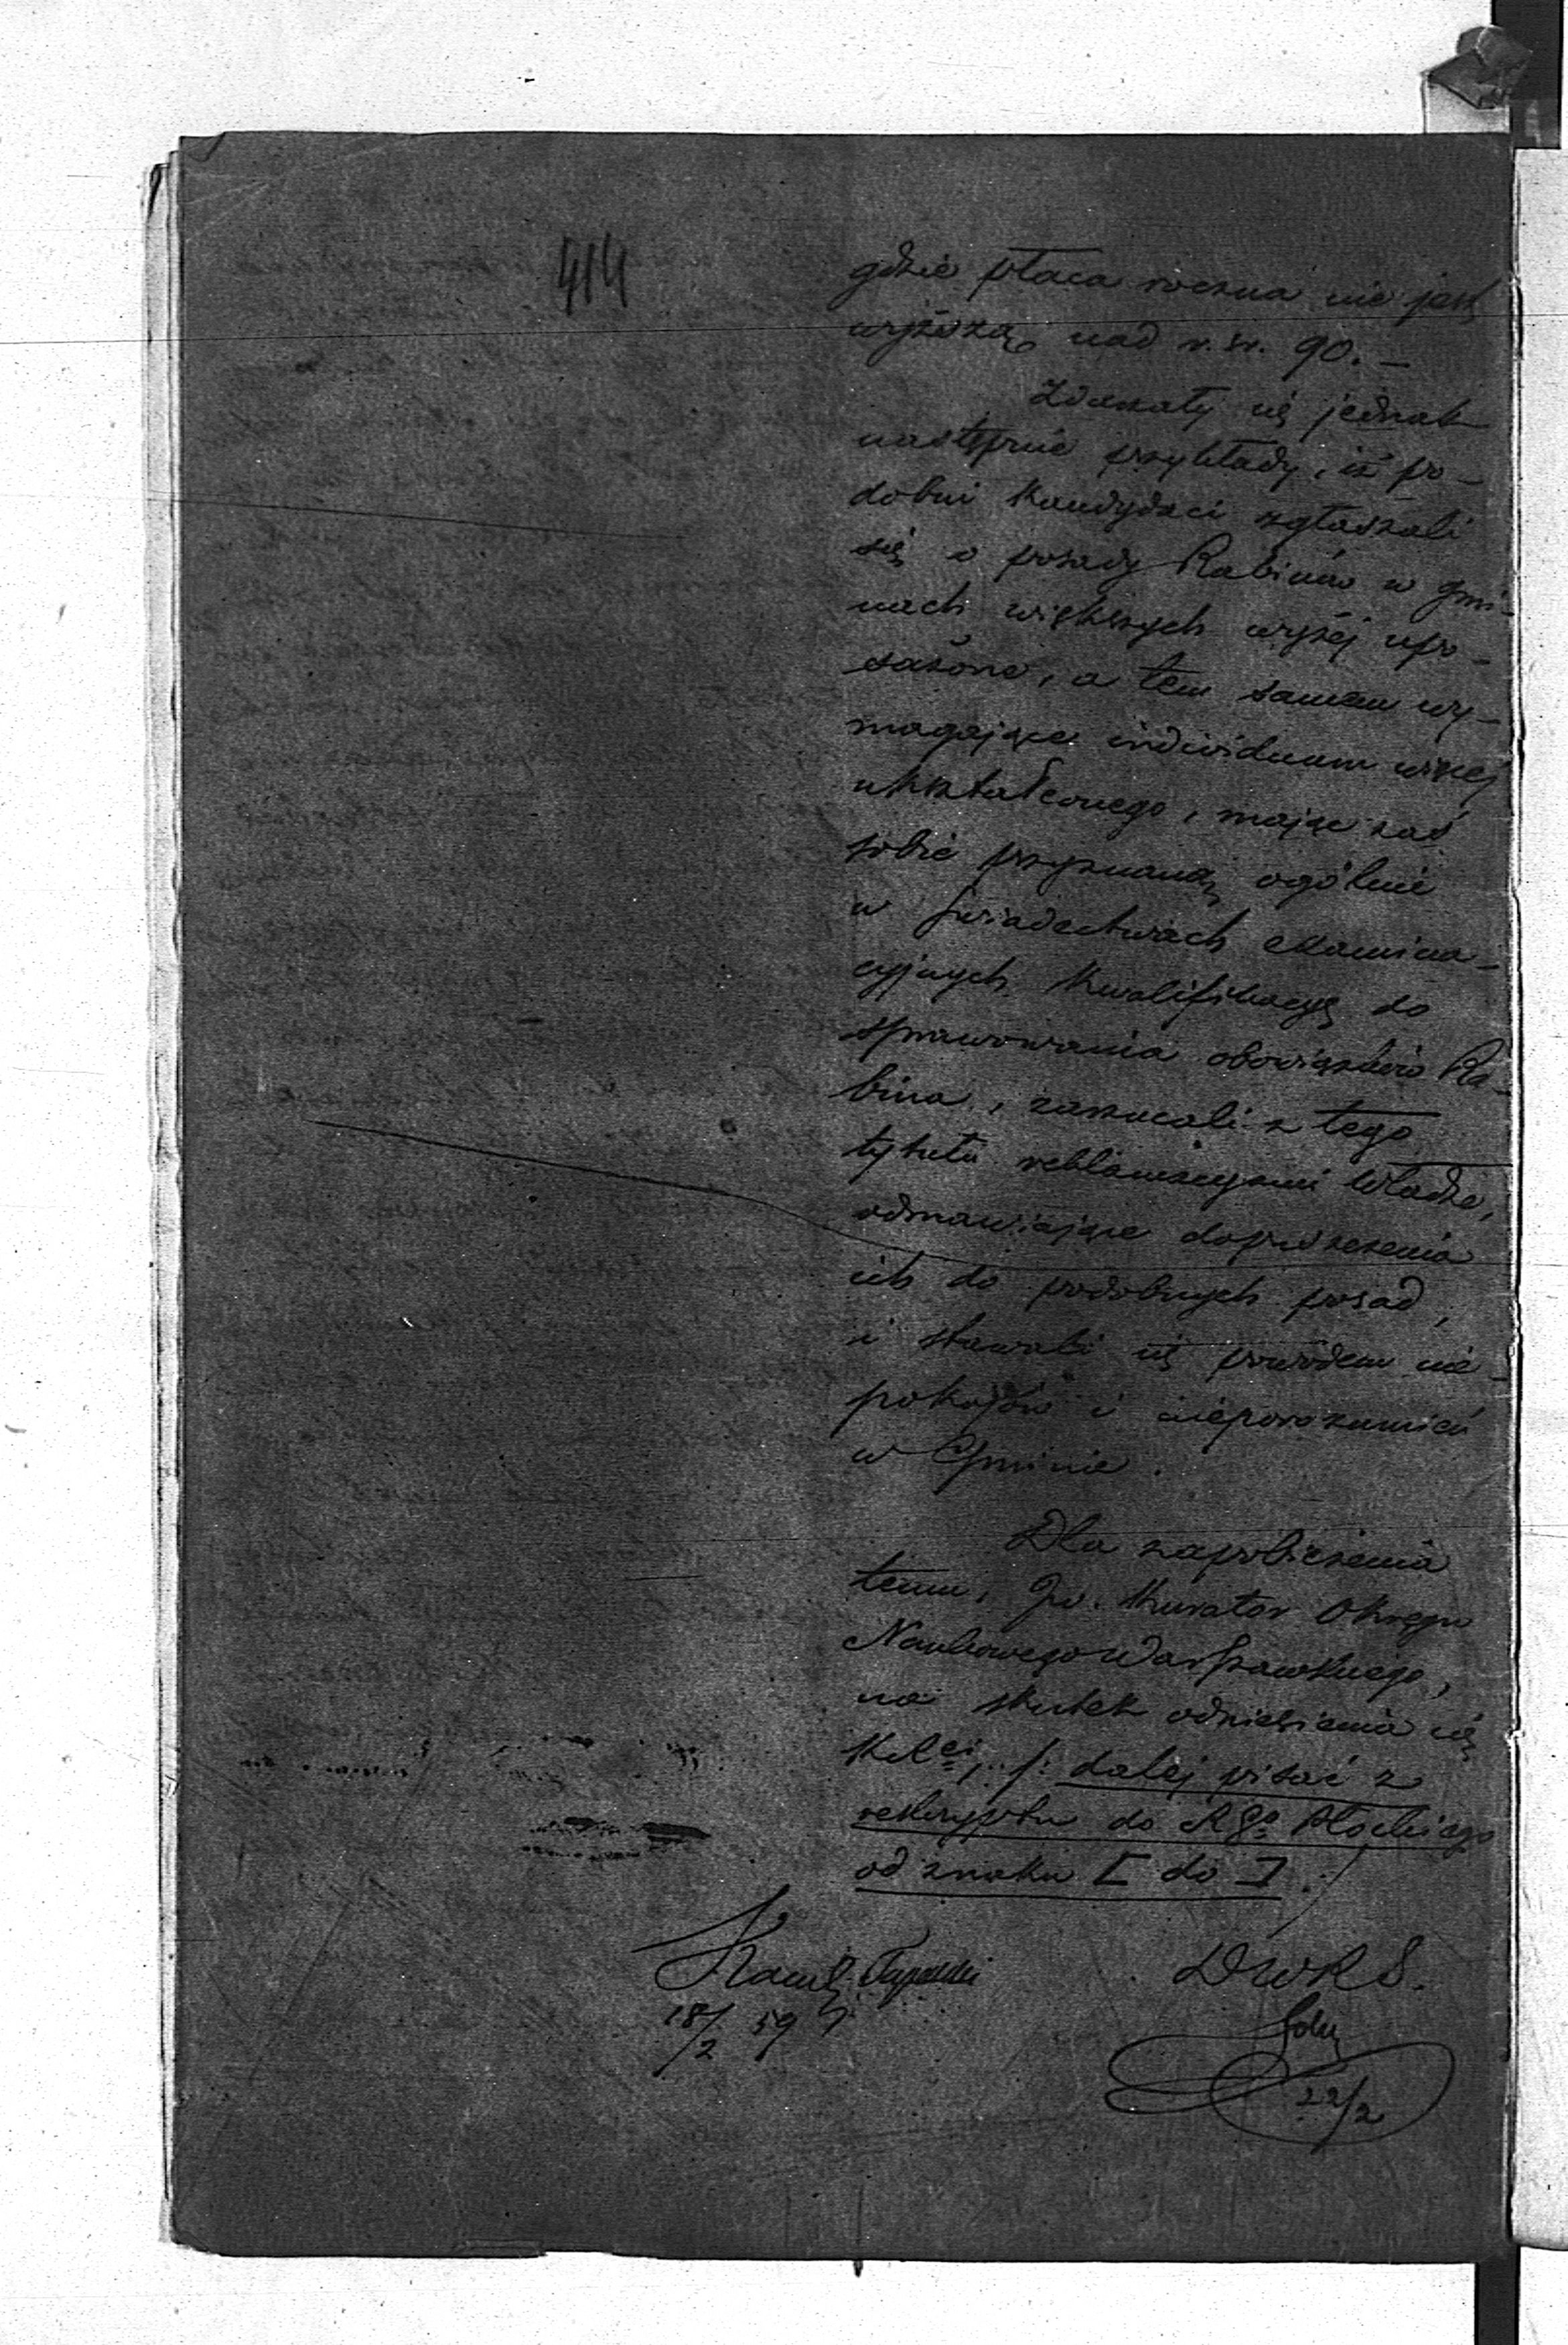 414
gdzie płaca roczna nie jest
wyższą nad r. sr. 90. —
Zdarzały się jednak
następnie przykłady, iż po-
dobni Kandydaci zgłaszali
się o posady Rabinów w gmi-
nach większych wyżej upo-
sażone, a tem samem wy-
magające individuum więcej
ukształconego, mając zaś
sobie przyznaną ogólnie
w świadectwach examina-
cyjnych kwalifikacyę do
sprawowania obowiązków Ra-
bina, zarzucali z tego
tytułu reklamacyami Władze,
odmawiające dopuszczenia
ich do podobnych posad,
i stawali się powodem nie-
pokojów i nieporozumień
w Gminie.
Dla zapobieżenia
temu, Jw. Kurator Okręgu
Naukowego Warszawskiego,
na skutek odniesienia się
/: dalej pisać z
reskryptu do RGo Płockiego
od znaku [ do ] :/
DWRS.
18/2 59
22/2